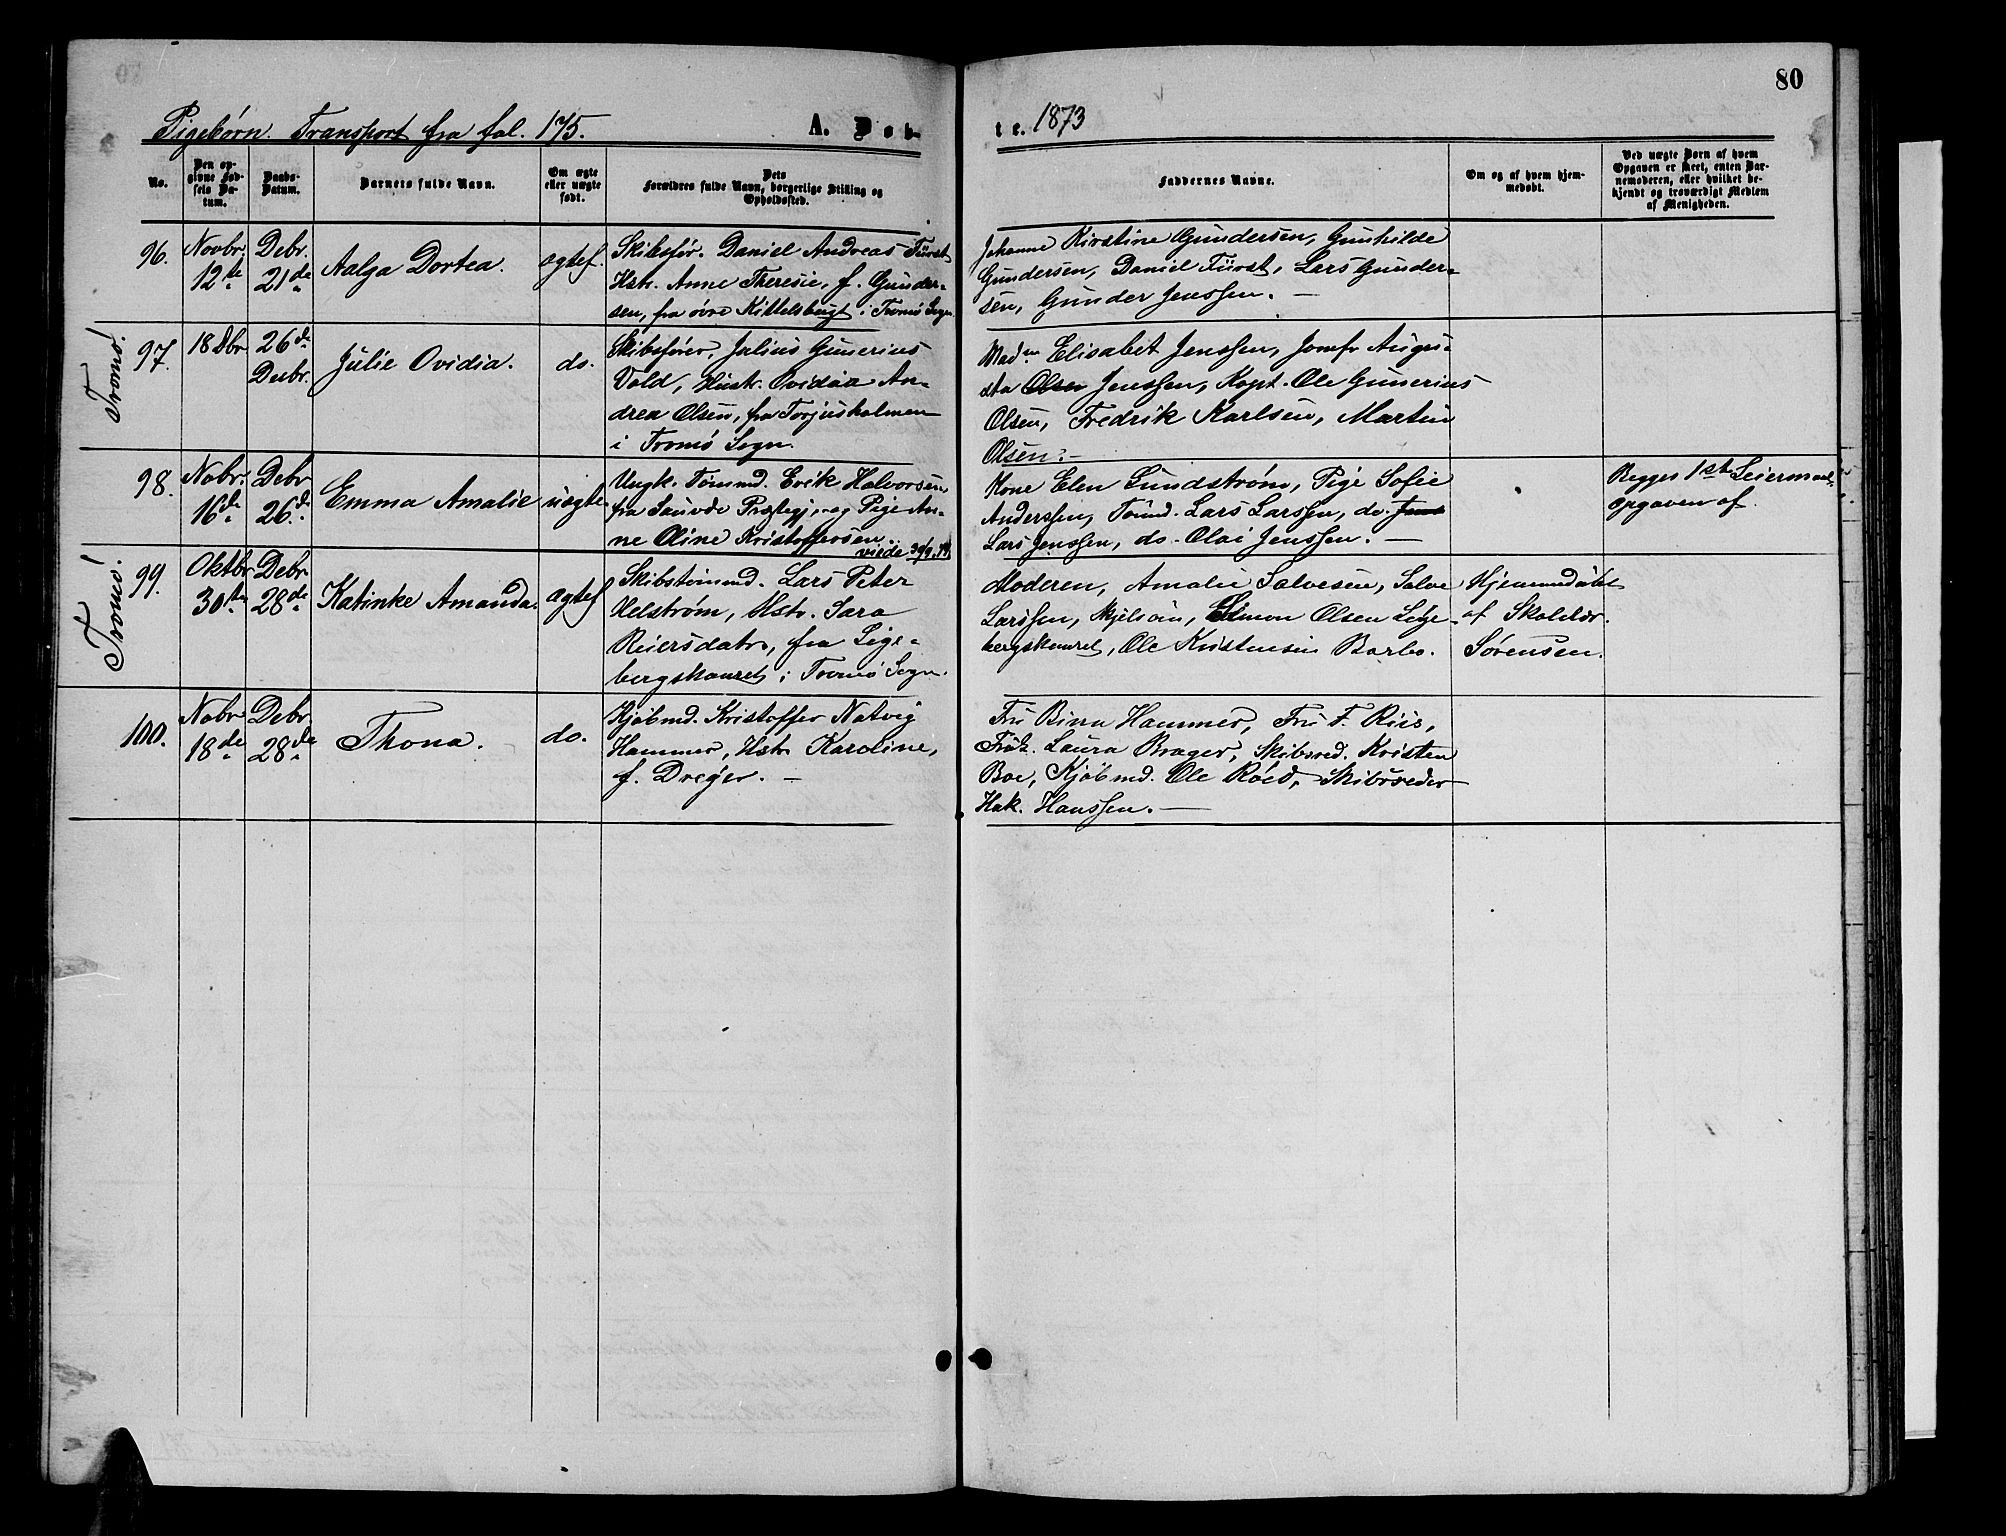 80
Pigebørn. Transport fra fol. 175. A. Døb-
te. 1873
No.
Den op-
givne Fød-
sels Da-
tum.
Daabs-
Datum.
Barnets fulde Navn.
Om ægte
eller uægte
født.
Dets
Forældres fulde Navn, borgerlige Stilling og
Opholdssted.
Faddernes Navne.
Om og af hvem hjem-
medøbt.
Ved uægte Børn af hvem
Opgaven er skeet, enten Bar-
nemoderen, eller hvilket be-
kjendt og troværdigt Medlem
af Menigheden.
96.
Novbr.
12te
Debr.
21de
Aalga Dortea.
ægtef.
Skibsfør. Daniel Andreas Fürst
Hstr. Anne Theresie, f. Gunder-
sen, fra øvre Kittelsbugt i Tromø Sogn.
Johanne Kirstine Gundersen, Gunhilde
Gundersen, Daniel Fürst, Lars Gunder-
sen, Gunder Jenssen. —
Tromø!
97.
18 Dbr
26de
Desbr.
Julie Ovidia.
do.
Skibsfører, Julius Gunerius
Vold, Hustr. Ovidia An-
drea Olsen, fra Torjusholmen
i Tromø Sogn.
Madm Elisabet Jenssen, Jomfr Augu-
sta Olsen Jenssen, Kapt. Ole Gunerius
Olsen, Fredrik Karlsen, Martin
Olsen. —
98.
Nobr.
16de
Debr
26de
Emma Amalie
uægte
Ungk. Tømmd. Erik Halvorsen
fra Sauvde Præstegj, og Pige An-
ne Oline Kristoffersen.
viede 30/9. 74
Kone Elen Lundstrøm, Pige Sofie
Anderssen, Tømd. Lars Larssen, do. Jens
Lars Jenssen, do. Olai Jenssen. —
Begges 1ste Leiermaal.
opgaven af.
Tromø!
99.
Oktbr
30te
Debr
28de
Katinke Amanda.
ægtef
Skibstømmd. Lars Peter
Helstrøm, Hstr. Sara
Reiersdatr, fra Lige-
bergskauret i Tromø Sogn.
Moderen, Amalie Salvesen, Salve
Larssen, Mjelsøen, Simon Olsen Lige-
bergskauret, Ole Kristensen Barbo.
Hjemmedøbt
af Skolelær.
Sørensen.
100.
Nobr
18de
Debr
28de
Thona.
do.
Kjøbmd. Kristoffer Natvig
Hammer, Hstr Karoline,
f. Dreyer. —
Fru Birra Hammer, Fru F. Riis,
Frøk. Laura Brager, Skibsred. Kristen
Boe, Kjøbmd. Ole Röed, Skibsreder
Hak. Hanssen. —